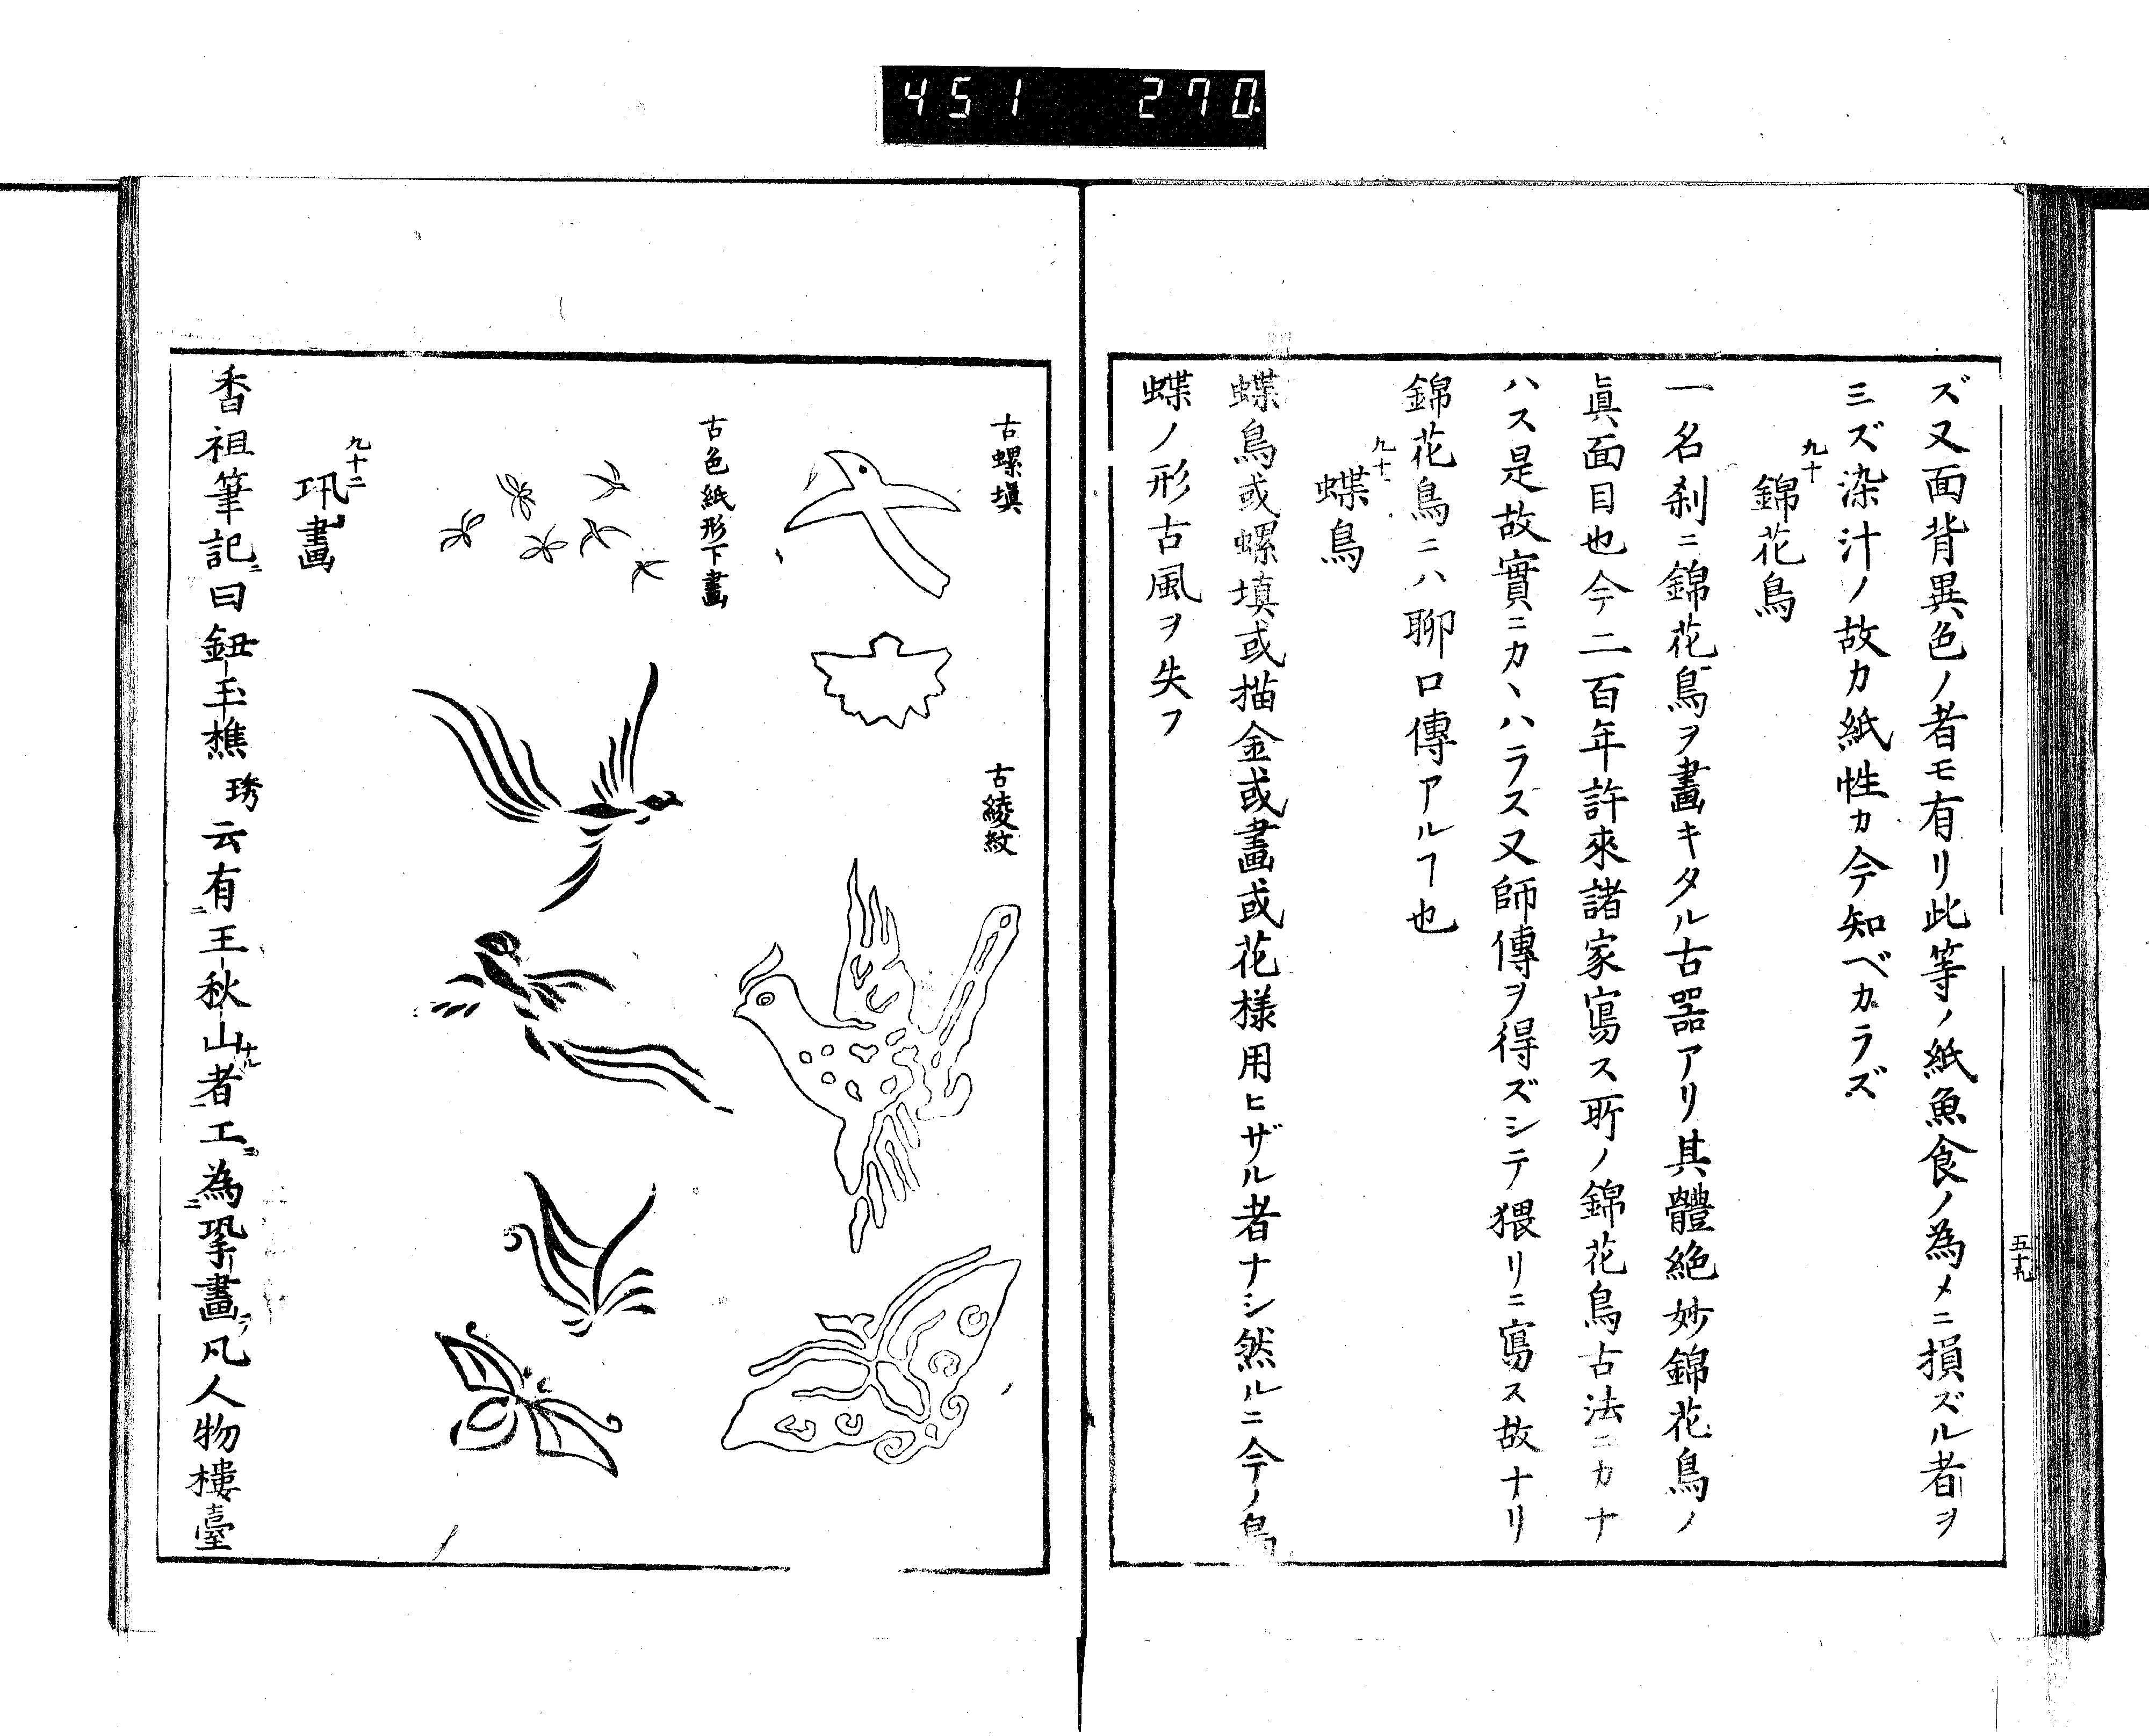 451 270
ズ又面背異色ノ者モ有リ此等ノ紙魚食ノ為メニ損ズル者ヲ
ミズ染汁ノ故カ紙性カ今知ベカラズ
九十
錦花鳥
一名刹ニ錦花鳥ヲ畫キタル古器アリ其體絶妙錦花鳥ノ
眞面目也今二百年許來諸家寫ス所ノ錦花鳥古法ニカナ
ハス是故實ニカヽハラス又師傳ヲ得ズシテ猥リニ寫ス故ナリ
錦花鳥ニハ聊口傳アルヿ也
九十一
蝶鳥
蝶鳥或螺填或描金或畫或花様用ヒザル者ナシ然ルニ今ノ鳥
蝶ノ形古風ヲ失フ
五十九
古螺塡
古綾紋
古色紙形下畫
九十二
巩畫
香祖筆記ニ曰鈕玉樵琇云有王秋山者工為巩畫凡人物樓臺